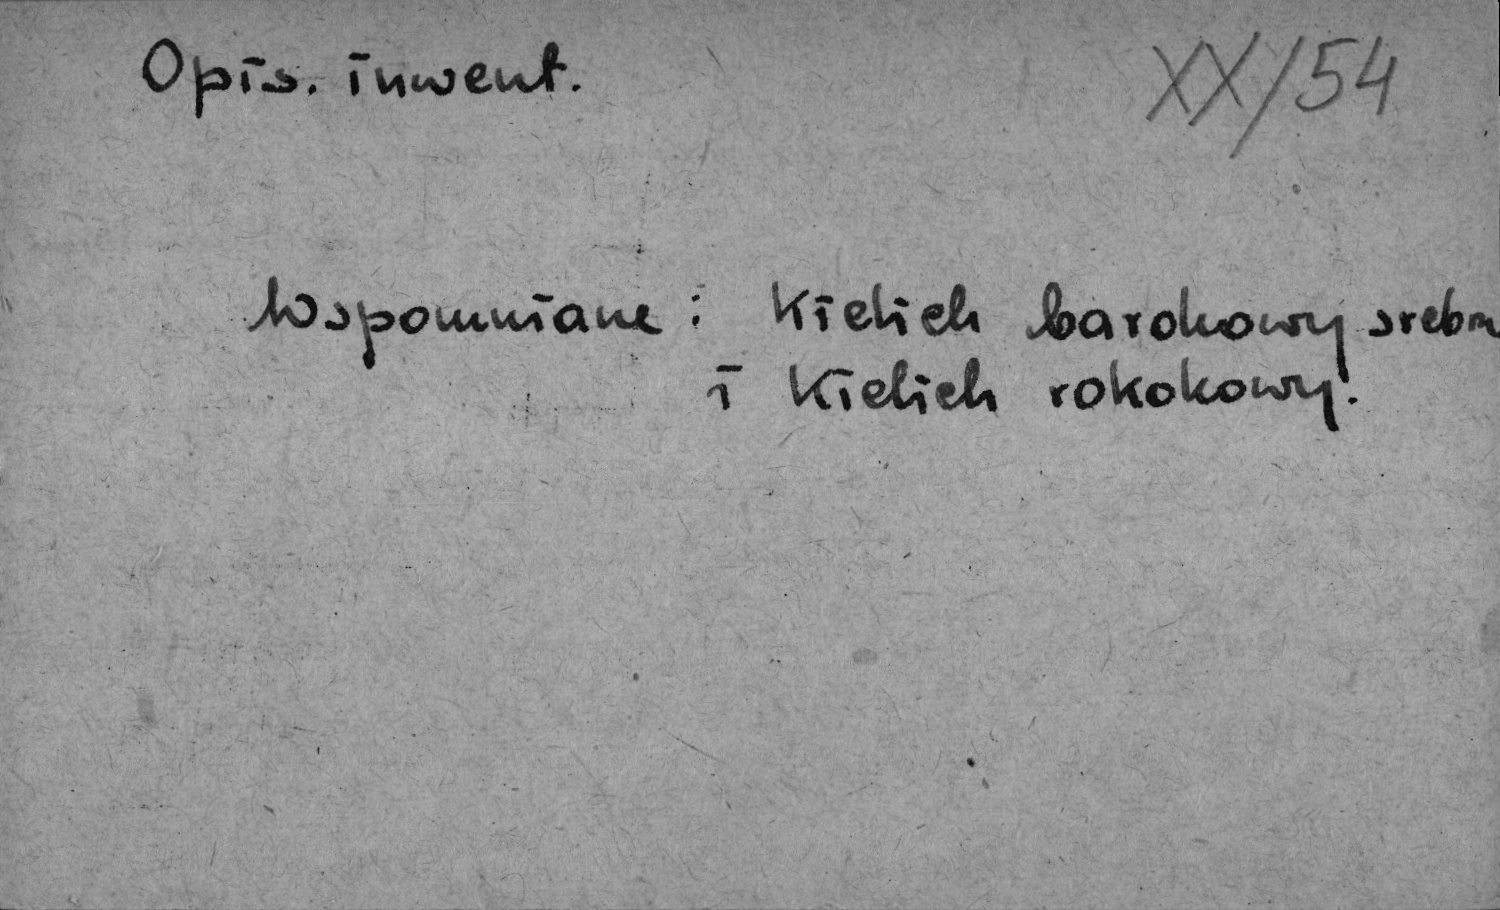 Opis. inwent. XX/54
Wspomniane: Kielich barokowy srebrn
i Kielich rokokowy.